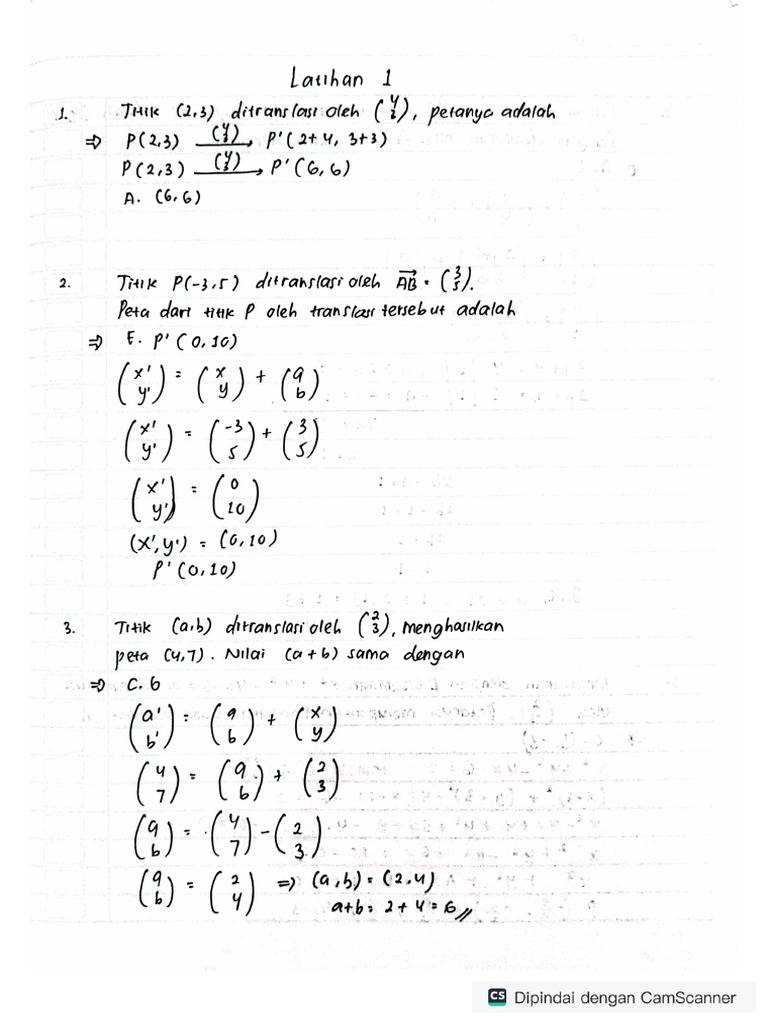 Latihan 1
1. Titik (2,3) ditranslasi oleh (4 3), petanya adalah
⇒ P(2,3) (4 3)→ P'(2+4, 3+3)
P(2,3) (4 3)→ P'(6,6)
A. (6,6)
2. Titik P(-3,5) ditranslasi oleh AB = (3 5).
Peta dari titik P oleh translasi tersebut adalah
⇒ E. P'(0,10)
(x' y') = (x y) + (a b)
(x' y') = (-3 5) + (3 5)
(x' y') = (0 10)
(x',y') = (0,10)
P'(0,10)
3. Titik (a,b) ditranslasi oleh (2 3), menghasilkan
peta (4,7). Nilai (a+b) sama dengan
⇒ C. 6
(a' b') = (a b) + (x y)
(4 7) = (a b) + (2 3)
(a b) = (4 7) - (2 3)
(a b) = (2 4) ⇒ (a,b) = (2,4)
a+b = 2+4 = 6 //
CS Dipindai dengan CamScanner